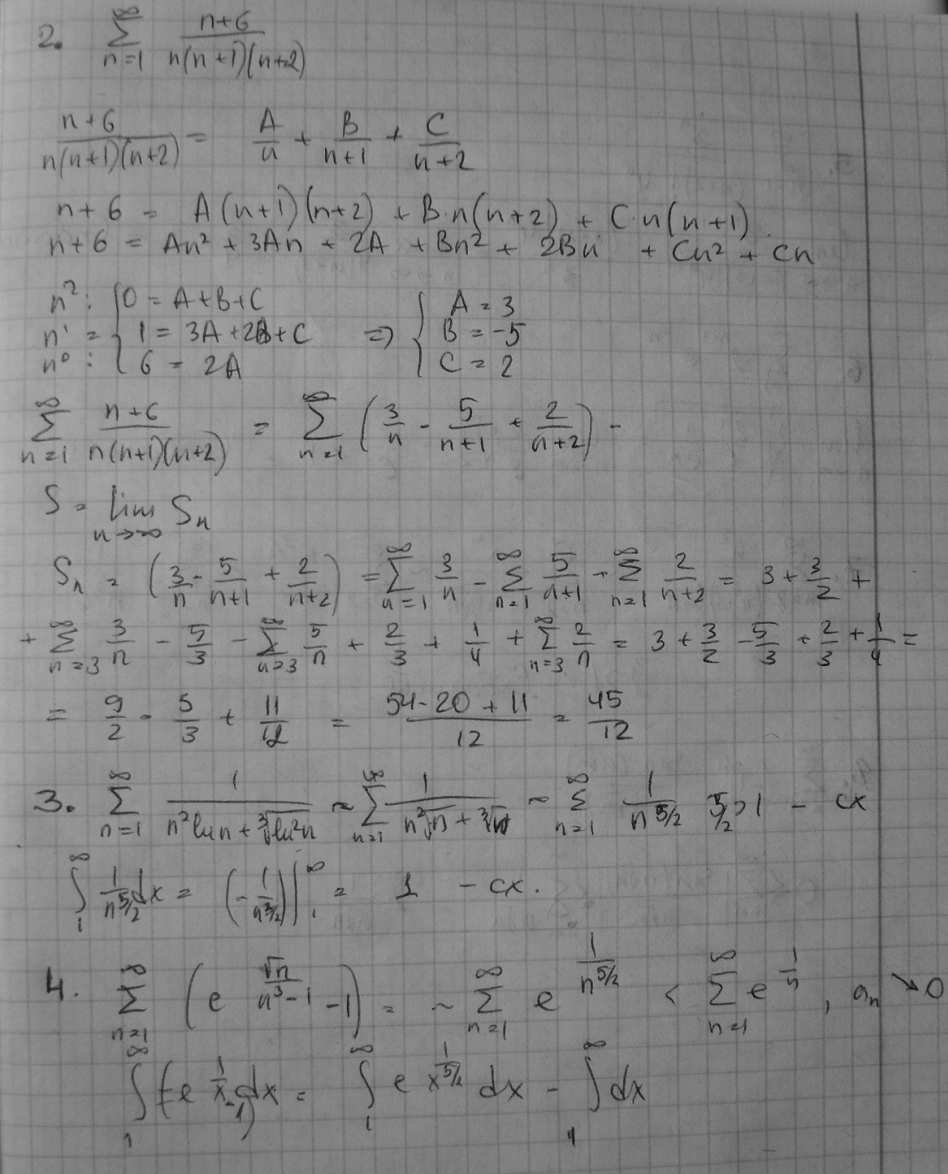 2. ∑_{n=1}^{∞} (n+6)/(n(n+1)(n+2))
(n+6)/(n(n+1)(n+2)) = A/n + B/(n+1) + C/(n+2)
n+6 = A(n+1)(n+2) + B·n(n+2) + C·n(n+1)
n+6 = An² + 3An + 2A + Bn² + 2Bn + Cn² + Cn
n²: { 0 = A+B+C { A = 3
n¹ = { 1 = 3A+2B+C => { B = -5
n⁰ : { 6 = 2A { C = 2
∑_{n=1}^{∞} (n+6)/(n(n+1)(n+2)) = ∑_{n=1}^{∞} (3/n - 5/(n+1) + 2/(n+2)) -
S = lim_{n→∞} Sₙ
Sₙ = (3/n - 5/(n+1) + 2/(n+2)) = ∑_{n=1}^{∞} 3/n - ∑_{n=1}^{∞} 5/(n+1) + ∑_{n=1}^{∞} 2/(n+2) = 3 + 3/2 +
+ ∑_{n=3}^{∞} 3/n - 5/3 - ∑_{n=3}^{∞} 5/n + 2/3 + 1/4 + ∑_{n=3}^{∞} 2/n = 3 + 3/2 - 5/3 + 2/3 + 1/4 =
= 9/2 - 5/3 + 11/12 = (54-20+11)/12 = 45/12
3. ∑_{n=1}^{∞} 1/(n² ln n + ∛(ln² n)) ~ ∑_{n=1}^{∞} 1/(n²√n + ∛n) ~ ∑_{n=1}^{∞} 1/n^{5/2} 5/2 > 1 - сх
∫_{1}^{∞} 1/n^{5/2} dx = (-1/n^{3/2})|_{1}^{∞} = 1 - сх.
4. ∑_{n=1}^{∞} (e^{√n/(n³-1)} - 1) = ~ ∑_{n=1}^{∞} e^{1/n^{5/2}} < ∑_{n=1}^{∞} e^{1/n}, aₙ ↘ 0
∫_{1}^{∞} (e^{1/x} - 1) dx = ∫_{1}^{∞} e^{1/x^{5/2}} dx - ∫_{1}^{∞} dx